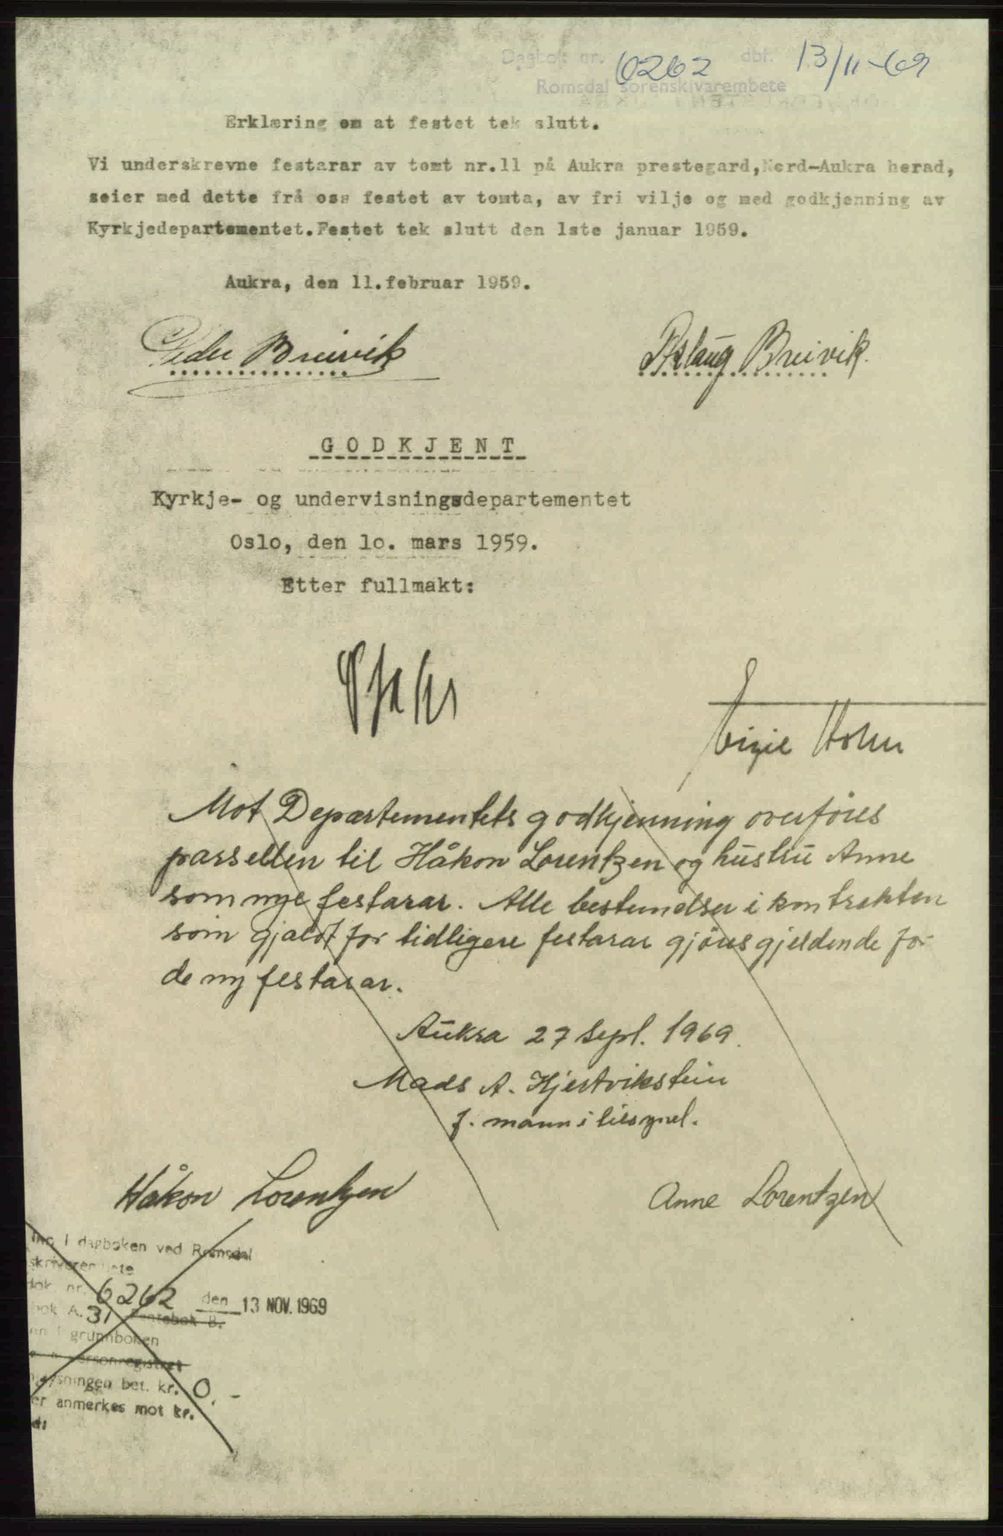 Dagbok nr. 6262 dbf. 13/11-69
Romsdal sorenskrivarembete
Erklæring om at festet tek slutt.
Vi underskrevne festarar av tomt nr.11 på Aukra prestegard,Nord-Aukra herad,
seier med dette frå oss festet av tomta, av fri vilje og med godkjenning av
Kyrkjedepartementet.Festet tek slutt den 1ste januar 1959.
Aukra, den 11.februar 1959.
Peder Breivik
Aslaug Breivik.
GODKJENT
Kyrkje- og undervisningsdepartementet
Oslo, den 1o. mars 1959.
Etter fullmakt:
Holm
Mot Departementets godkjenning overføres
parsellen til Håkon Lorentzen og hustru Anne
som nye festarar. Alle bestemelser i kontrakten
som gjaldt for tidligere festarar gjöres gjeldende for
de ny festarar.
Aukra 27 Sept. 1969.
Mads A. Hjertvikstein
f. mann i tilsynet.
Håkon Lorentzen
Anne Lorentzen
i dagboken ved Romsdal
dok. nr. 6262 den 13 NOV. 1969
bok A. 31 Pantebok B.
i grunnboken
personregistret
bet. kr. 0.-
er anmerkes mot kr.